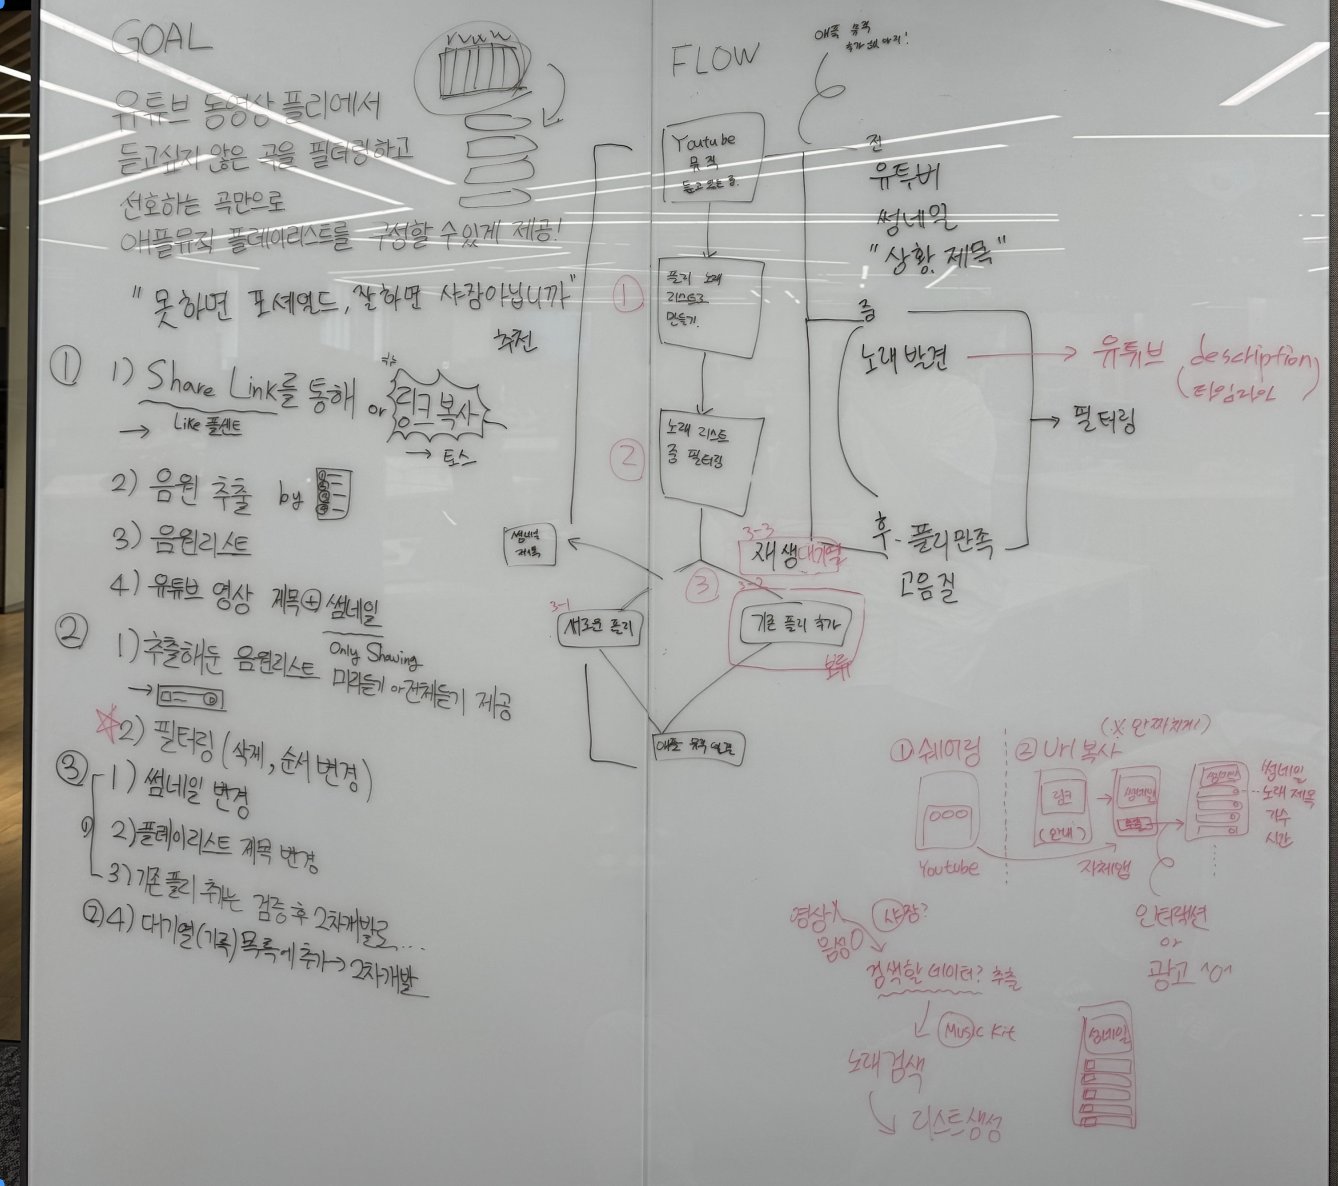 GOAL
유튜브 동영상 플리에서
듣고싶지 않은 곡을 필터링하고
선호하는 곡만으로
애플뮤직 플레이리스트를 구성할 수 있게 제공!
"못하면 포세일드, 잘하면 사장아닙니까"
추진
① 1) Share Link를 통해 or 링크 복사
→ Like 플센트
→ 토스
2) 음원 추출 by
3) 음원리스트
4) 유튜브 영상 제목 + 썸네일
Only Showing
② 1) 추출해둔 음원리스트 미리듣기 or 전체듣기 제공
→
2) 필터링 (삭제, 순서 변경)
③ 1) 썸네일 변경
①
2) 플레이리스트 제목 변경
3) 기존 플리 추가는 검증 후 2차개발로...
② 4) 대기열(기록) 목록에 추가 → 2차개발
FLOW
애플 뮤직
Youtube
뮤직
듣고 있는 중.
전
유투버
썸네일
"상황, 제목"
①
플리 노래
리스트로
만들기.
중
노래 발견
유튜브 description
(타임라인)
필터링
②
노래 리스트
중 필터링
후 - 플리만족
고음질
썸네일
제목
3-3
재생대기열
③
3-1
새로운 플리
3-2
기존 플리 추가
보류
애플 뮤직 연결
① 쉐어링
② Url 복사
(X 안까지게)
링크
(안내)
썸네일
추출
썸네일
썸네일
노래 제목
가수
시간
Youtube
자체앱
인터랙션
or
광고 ^0^
영상X
음성O
사장?
검색할 데이터? 추출
Music Kit
노래 검색
리스트 생성
썸네일